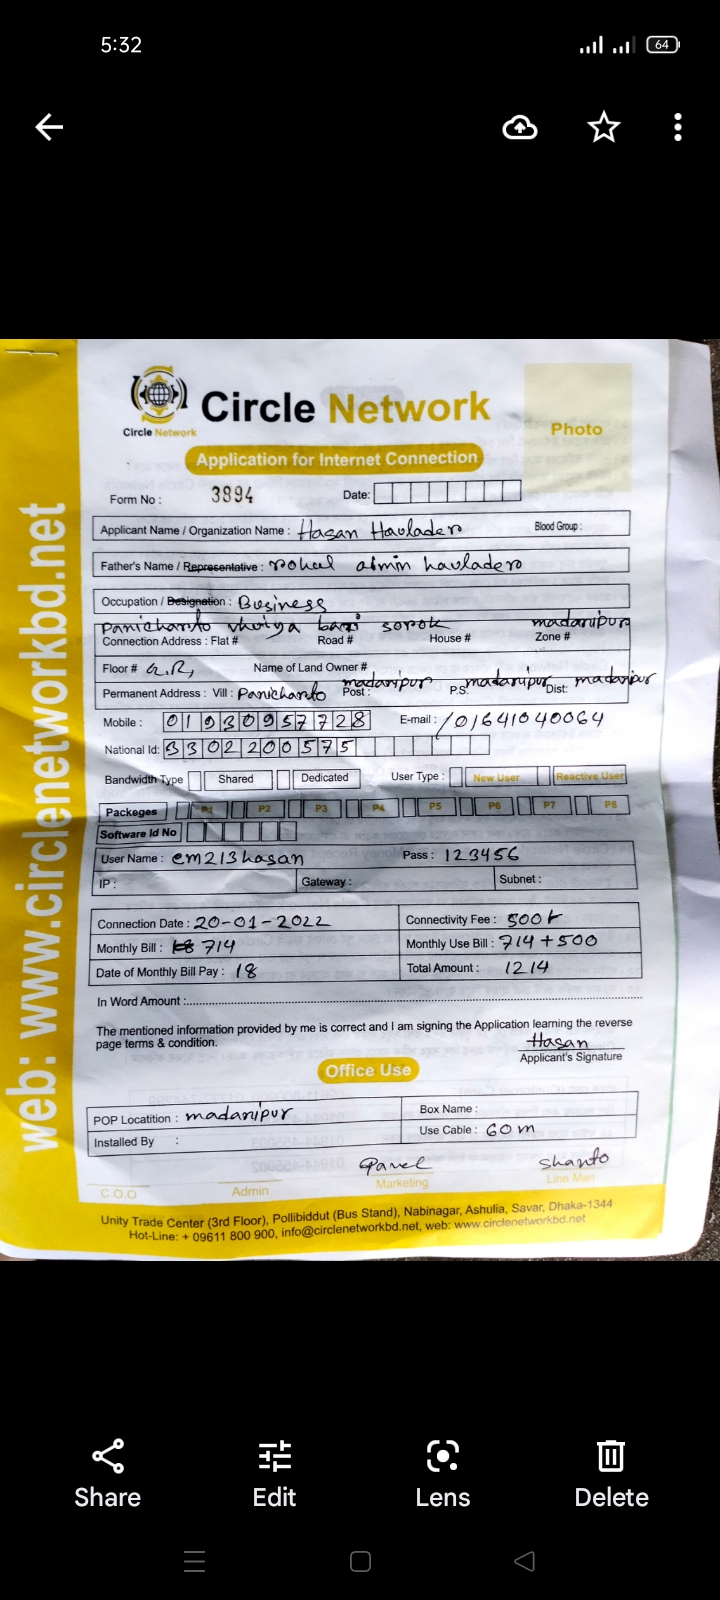 5:32
64
Circle Network
Circle Network
Photo
Application for Internet Connection
Form No : 3894 Date:
Applicant Name / Organization Name : Hasan Havlader Blood Group :
Father's Name / Representative : rohul amin havlader
Occupation / Designation : Business
Panichatto vhuiya bari sorok madaripur
Connection Address : Flat # Road # House # Zone #
Floor # G.R, Name of Land Owner #
Permanent Address : Vill : Panichatto Post : madaripur P.S. madaripur Dist: madaripur
Mobile : 01930957728 E-mail : /01641040064
National Id: 3302200575
Bandwidth Type Shared Dedicated User Type : New User Reactive User
Packeges P1 P2 P3 P4 P5 P6 P7 P8
Software Id No
User Name : em213hasan Pass : 123456
IP : Gateway : Subnet :
Connection Date : 20-01-2022 Connectivity Fee : 500/-
Monthly Bill : 714 Monthly Use Bill : 714+500
Date of Monthly Bill Pay : 18 Total Amount : 1214
In Word Amount :
The mentioned information provided by me is correct and I am signing the Application learning the reverse
page terms & condition.
Hasan
Applicant's Signature
Office Use
POP Locatition : madaripur Box Name :
Installed By : Use Cable : 60m
Parvel Shanto
C.O.O Admin Marketing Line Man
Unity Trade Center (3rd Floor), Pollibiddut (Bus Stand), Nabinagar, Ashulia, Savar, Dhaka-1344
Hot-Line: + 09611 800 900, info@circlenetworkbd.net, web: www.circlenetworkbd.net
web: www.circlenetworkbd.net
Share Edit Lens Delete